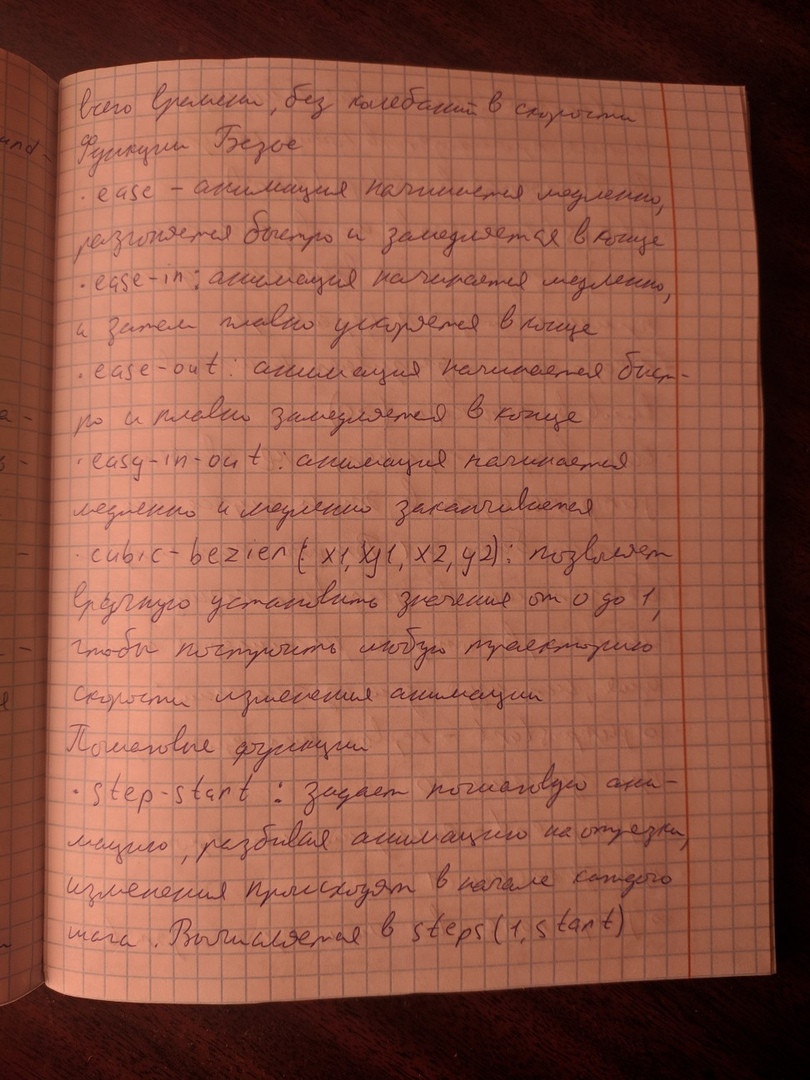 всего времени, без колебаний в скорости
Функции Безье
· ease – анимация начинается медленно,
разгоняется быстро и замедляется в конце
· ease-in: анимация начинается медленно,
а затем плавно ускоряется в конце
· ease-out: анимация начинается быст-
ро и плавно замедляется в конце
· easy-in-out: анимация начинается
медленно и медленно заканчивается
· cubic-bezier(x1, y1, x2, y2): позволяет
вручную установить значения от 0 до 1,
чтобы построить любую траекторию
скорости изменения анимации
Пошаговые функции
· step-start: задает пошаговую ани-
мацию, разбивая анимацию на отрезки,
изменения происходят в начале каждого
шага. Вычисляется в steps(1, start)